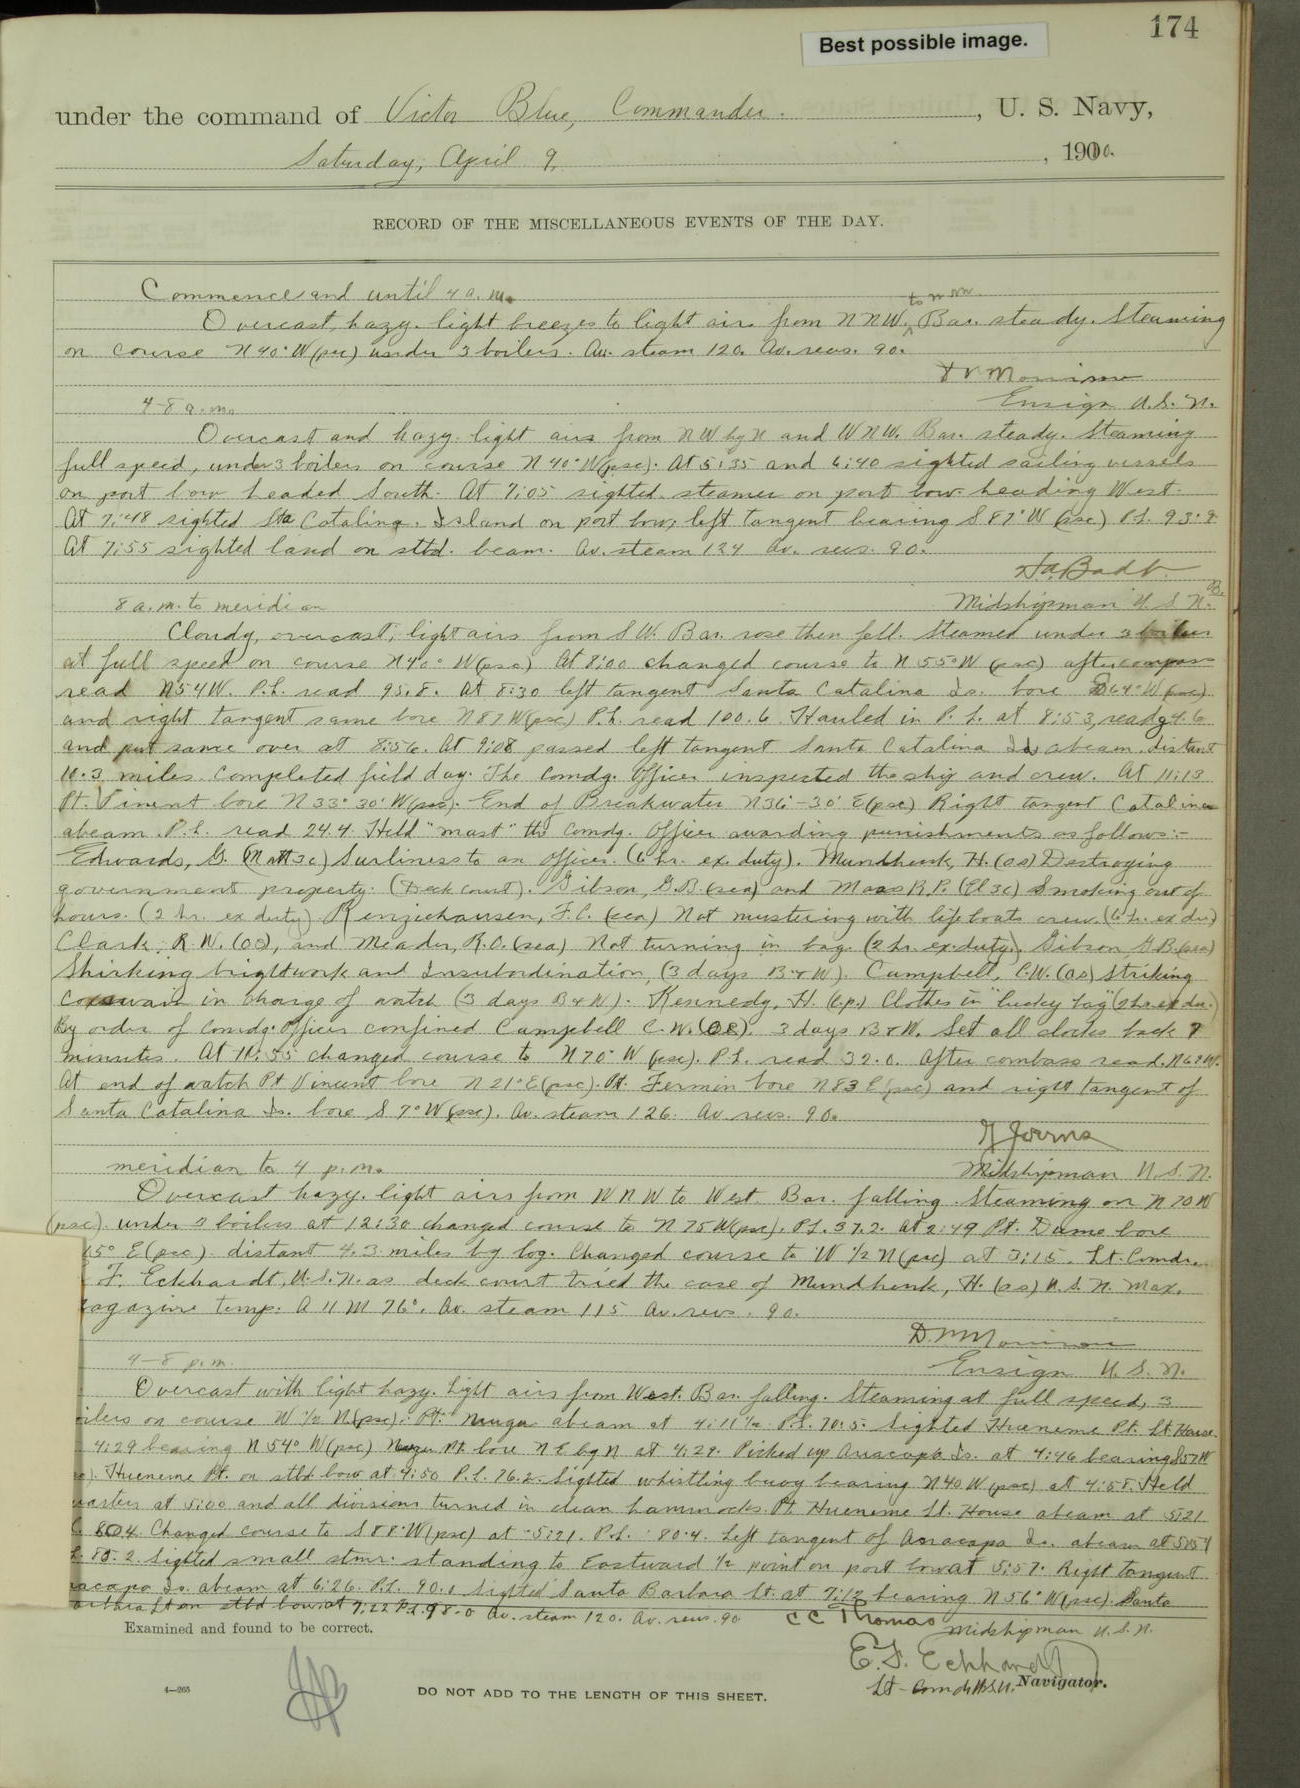 174
Best possible image.
under the command of Victor Blue, Commander. , U. S. Navy,
Saturday, April 9, , 1910.
RECORD OF THE MISCELLANEOUS EVENTS OF THE DAY.
Commence and until 4 a.m.
to NW.
Overcast, hazy. light breezes to light airs from NNW, Bar. steady. Steaming
on course N 40° W (psc) under 3 boilers. Av. steam 120. Av. revs. 90.
Ensign U.S.N.
4-8 a.m.
Overcast and hazy. light airs from NW by N and WNW. Bar. steady. Steaming
full speed, under 3 boilers on course N 40° W (psc). At 5:35 and 6:40 sighted sailing vessels
on port bow headed South. At 7:05 sighted steamer on port bow heading West.
At 7:48 sighted Sta Catalina. Island on port bow, left tangent bearing S 87° W (psc) P.L. 93.9
At 7:55 sighted land on stbd. beam. Av. steam 124 Av. revs. 90.
8 a.m. to meridian
Midshipman U.S.N.
Cloudy, overcast, light airs from SW. Bar. rose then fell. Steamed under 3 boilers
at full speed on course N 40° W (psc) At 8:00 changed course to N 55° W (psc) after compass
read N54W. P.L. read 95.8. At 8:30 left tangent Santa Catalina Is. bore S 64° W (psc)
and right tangent same bore N 87 W (psc) P.L. read 100.6. Hauled in P.L. at 8:53, read 94.6
and put same over at 8:56. At 9:08 passed left tangent Santa Catalina Is abeam distant
10.3 miles. Completed field day. The Comdg. Officer inspected the ship and crew. At 11:13
Pt. Vincent bore N 33° 30' W (psc). End of Breakwater N36°-30' E (psc) Right tangent Catalina
abeam. P.L. read 24.4. Held "mast" the Comdg. Officer awarding punishments as follows:-
Edwards, G. (Matt 3c) Surliness to an officer. (6 hr. ex. duty). Mundhenk, H. (os) Destroying
government property. (Deck Court). Gibson, G.B. (sea) and Maas R.P. (El 3c) Smoking out of
hours. (2 hr. ex duty) Renziehausen, F.C. (sea) Not mustering with life boats crew. (6 hr. ex du)
Clark, R.W. (OS), and Meader, R.O. (sea) Not turning in bag. (2 hr. ex. duty). Gibson G.B. (sea)
Shirking brightwork and Insubordination, (3 days B & W). Campbell, C.W. (os) Striking
coxswain in charge of watch (3 days B & W). Kennedy, H. (c.p.) Clothes in "lucky bag" (2 hr ex du.)
By order of Comdg. Officer confined Campbell C.W. (OS). 3 days B & W. Set all clocks back 7
minutes. At 11:55 changed course to N 70° W (psc). P.L. read 32.0. After compass read N 69 W.
At end of watch Pt Vincent bore N 21° E (psc). Pt. Fermin bore N 83 E (psc) and right tangent of
Santa Catalina Is. bore S 7° W (psc). Av. steam 126. Av. revs. 90.
meridian to 4 p.m.
Midshipman U.S.N.
Overcast hazy. light airs from WNW to West. Bar. falling. Steaming on N 70 W
(psc) under 3 boilers at 12:30 changed course to N 75 W (psc). P.L. 37.2. At 2:49 Pt. Dume bore
15° E (psc) distant 4.3 miles by log. Changed course to W ½ N (psc) at 3:15. Lt. Comdr.
F. Eckhardt, U.S.N. as deck court tried the case of Mundhenk, H. (os) U.S.N. Max.
agazine temp. A 11 M 76°. Av. steam 115 Av. revs. 90.
4-8 p.m.
Ensign U.S.N.
Overcast with light hazy. Light airs from West. Bar. falling. Steaming at full speed, 3
oilers on course W ½ N (psc). Pt. Mugu abeam at 4:11½ P.L. 70.5. Sighted Hueneme Pt. Lt House
4:29 bearing N 54° W (psc) Mugu Pt. bore N E by N at 4:29. Picked up Anacapa Is. at 4:46 bearing S 57 W
Hueneme Pt. on stbd bow at 4:50 P.L. 76.2. Sighted whistling buoy bearing N 40 W (psc) at 4:58. Held
uarters at 5:00 and all divisions turned in clean hammocks. Pt. Hueneme Lt. House abeam at 5:21
80.4. Changed course to S 88° W (psc) at 5:21. P.L. 80.4. Left tangent of Anacapa Is. abeam at 5:54
L. 85.2. Sighted small stmr. standing to Eastward ½ point on port bow at 5:57. Right tangent
nacapa Is. abeam at 6:26. P.L. 90.1 Sighted Santa Barbara Lt. at 7:12 bearing N 56° W (psc). Santa
arbara Lt on stbd bow at 7:22 P.L. 98.0 Av. steam 120. Av. revs. 90 C C Thomas
Midshipman U.S.N.
Examined and found to be correct.
E. F. Eckhardt
Lt-Comdr U.S.N. Navigator.
4—265
DO NOT ADD TO THE LENGTH OF THIS SHEET.